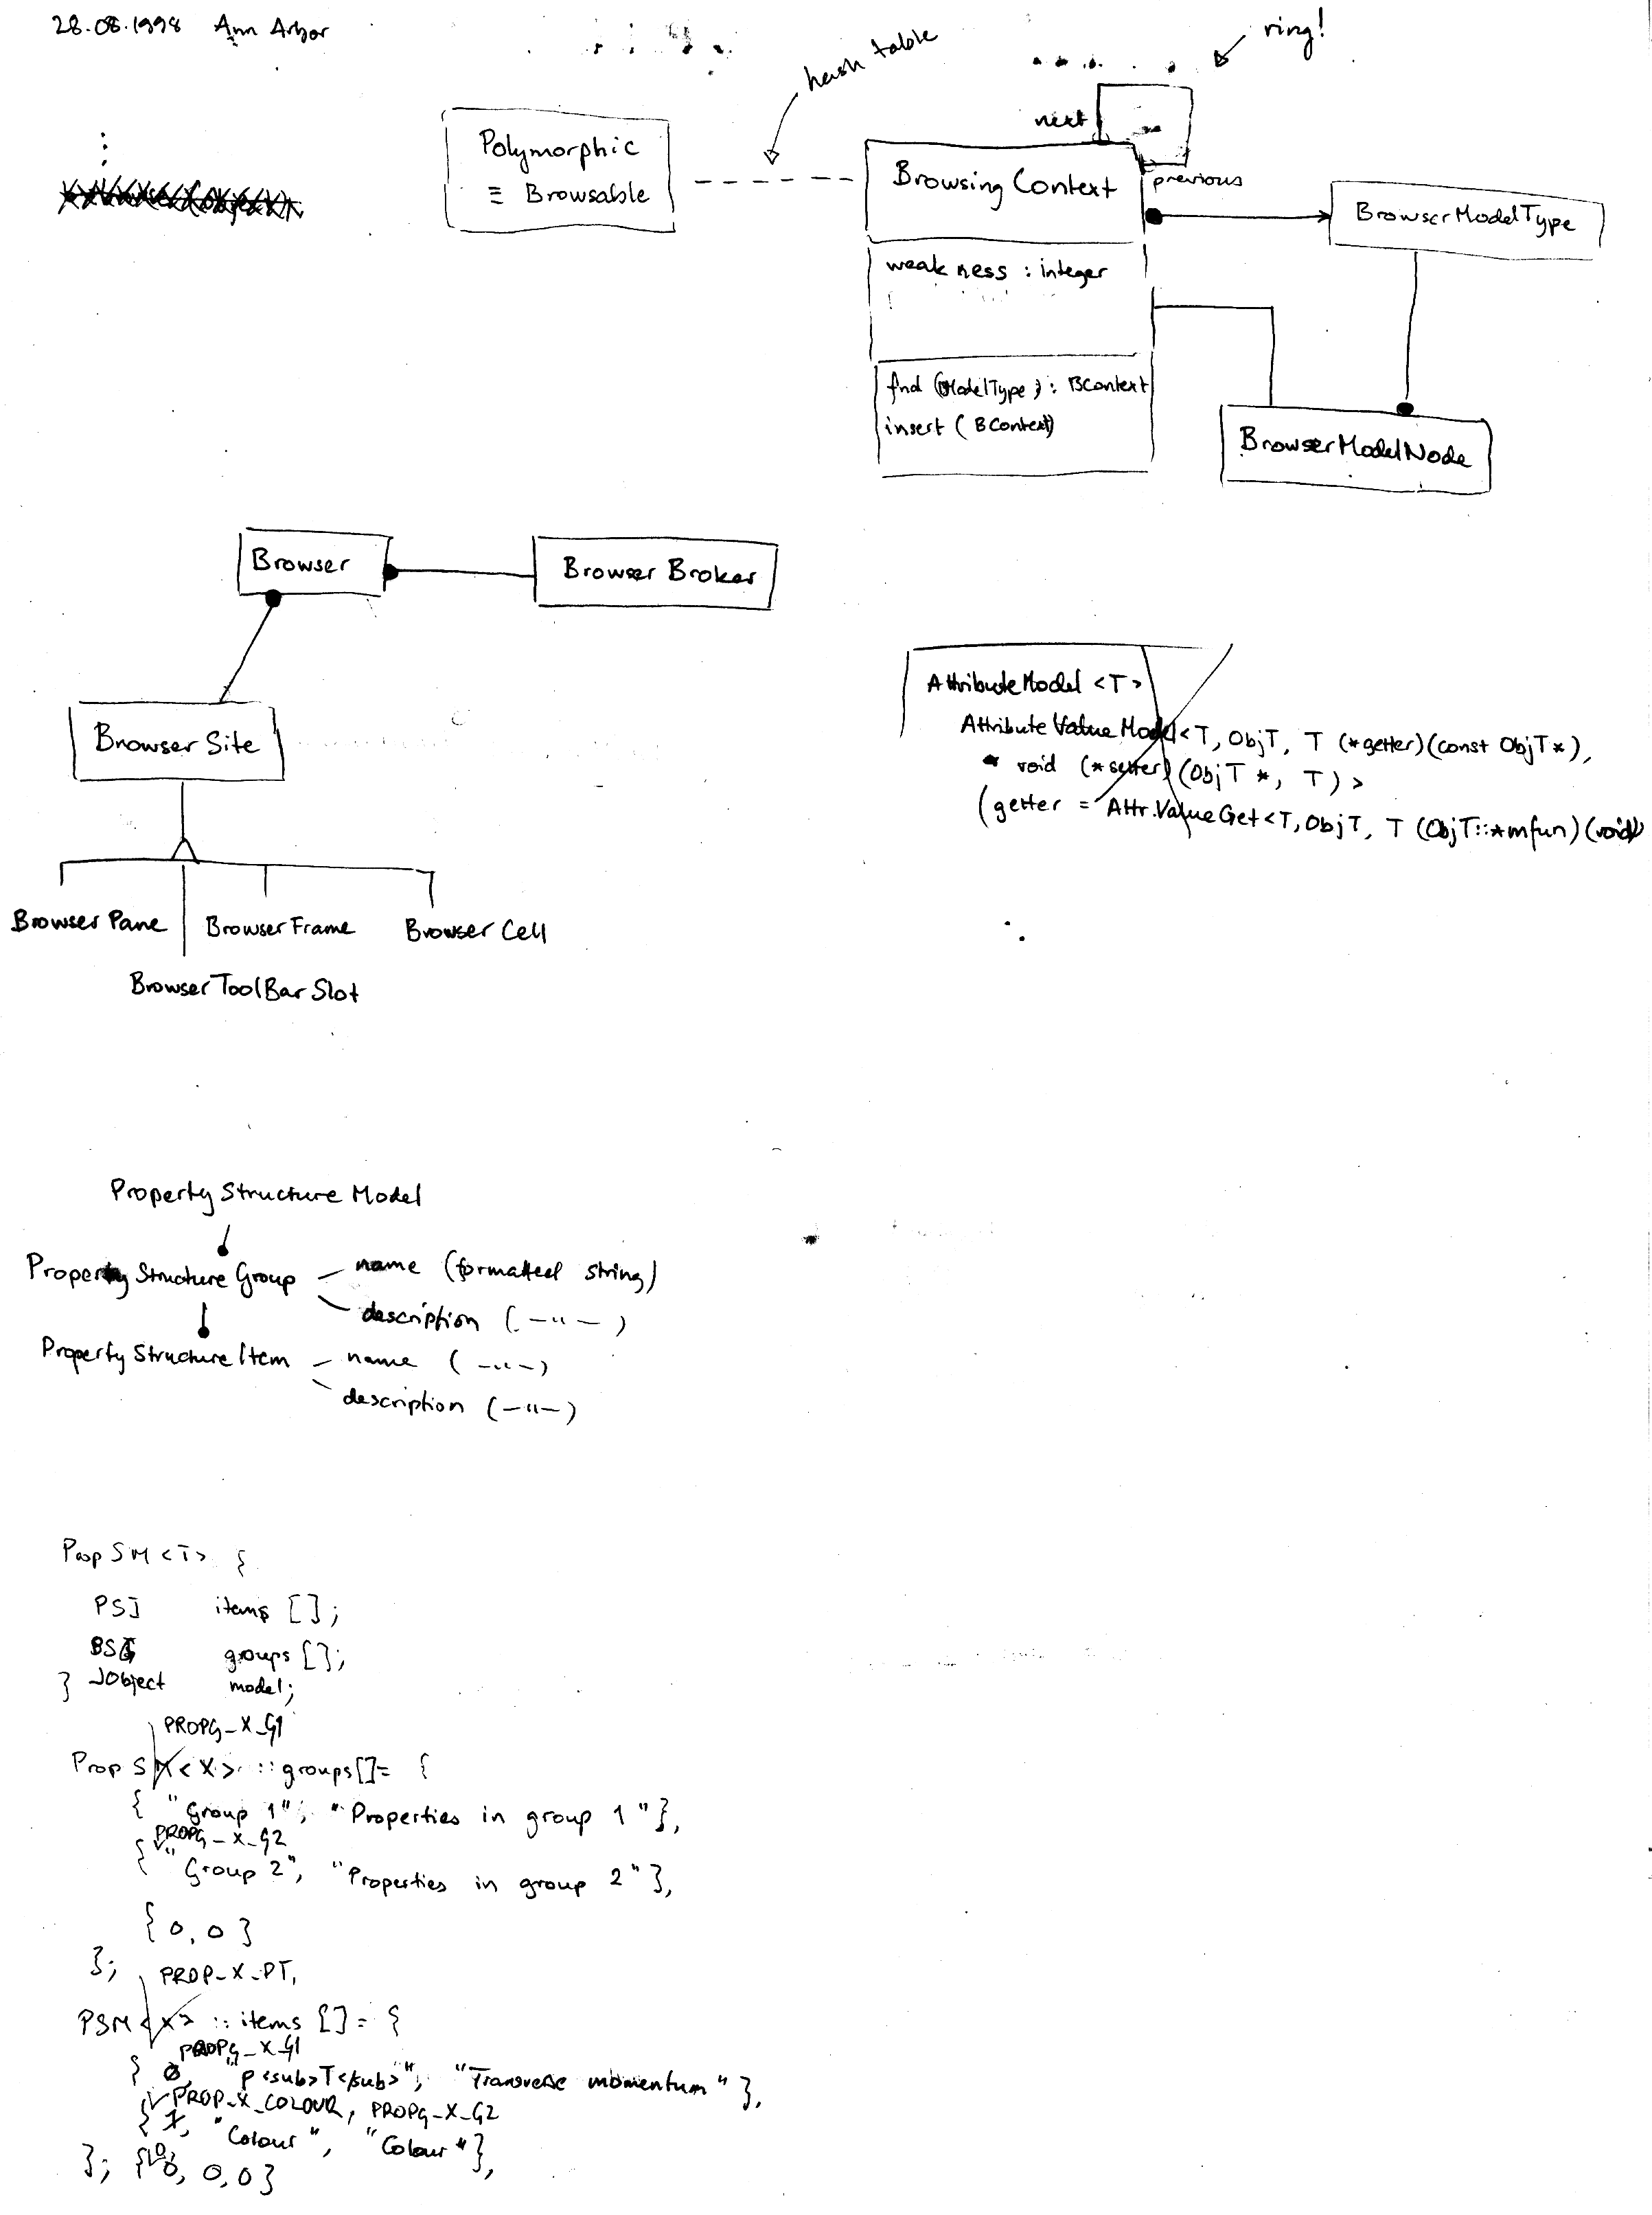 28.08.1998 Ann Arbor
hash table
ring!
next
previous
Polymorphic
≡ Browsable
Browsing Context
weakness : integer
find (ModelType) : BContext
insert (BContext)
BrowserModelType
BrowserModelNode
Browser
Browser Broker
Browser Site
Browser Pane
Browser Frame
Browser Cell
Browser ToolBar Slot
AttributeModel <T>
AttributeValueModel<T, ObjT, T (*getter)(const ObjT*),
void (*setter)(ObjT *, T) >
(getter = Attr.ValueGet<T, ObjT, T (ObjT::*mfun)(void)
Property Structure Model
Property Structure Group — name (formatted string)
description ( —"— )
Property Structure Item — name ( —"— )
description ( —"— )
PropSM<T> {
PSI items [];
PSG groups [];
} JObject model;
PROPG_X_G1
PropSM<X> ::groups[]= {
{ "Group 1", "Properties in group 1"},
PROPG_X_G2
{ "Group 2", "Properties in group 2"},
{0, 0}
};
PROP_X_PT,
PSM<X> :: items []= {
PROPG_X_G1
{ 0, "p<sub>T</sub>", "Transverse momentum"},
PROP_X_COLOUR, PROPG_X_G2
{ 1, "Colour", "Colour"},
}; {0, 0, 0}